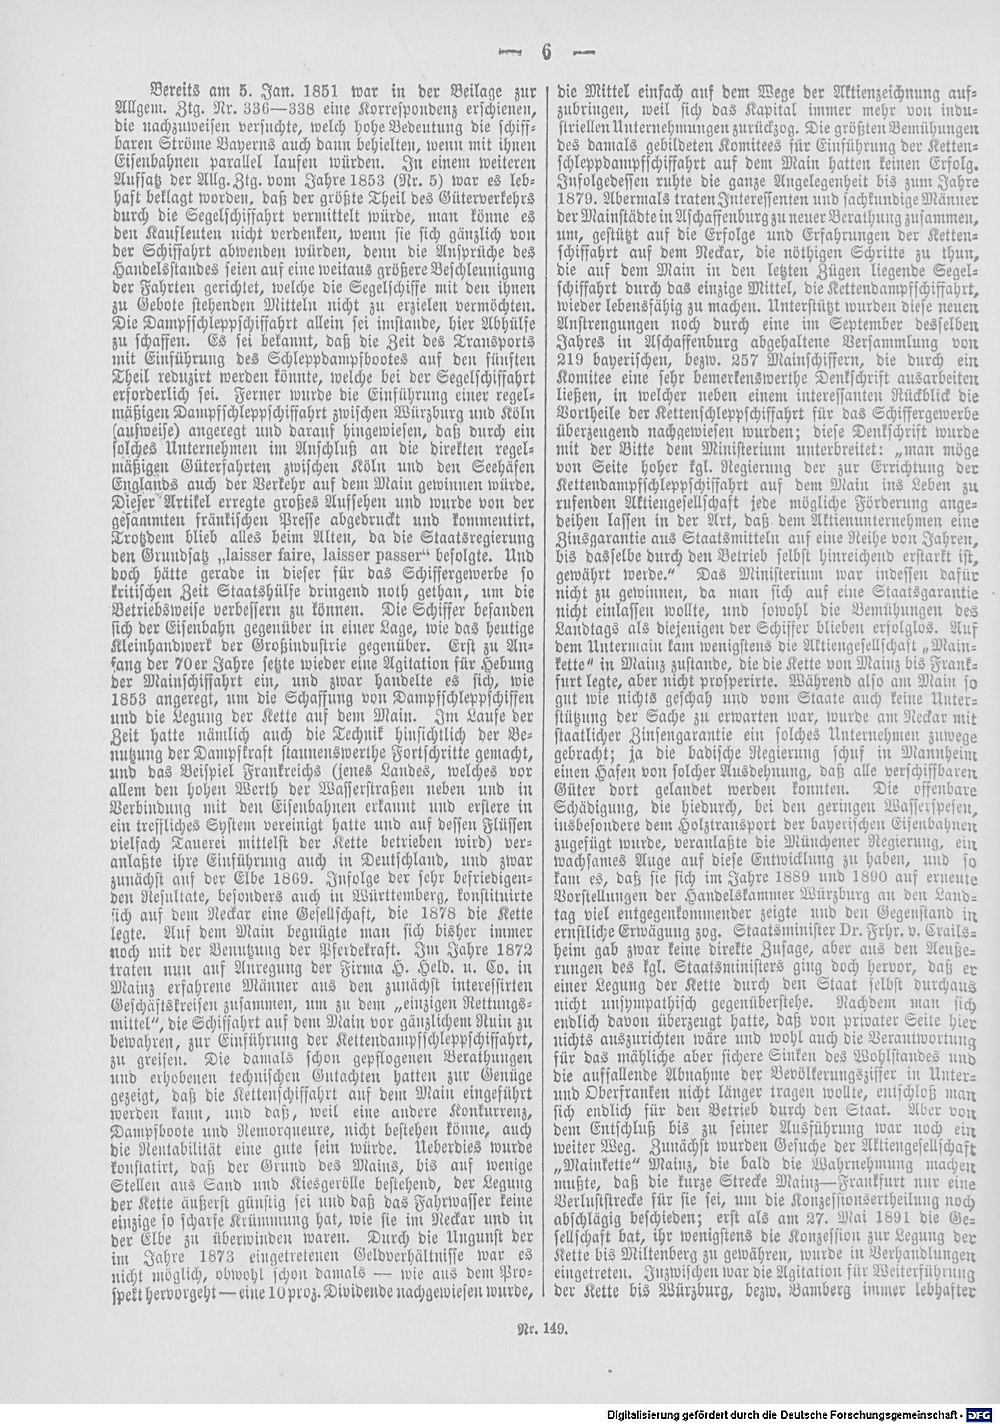 — 6 —
Bereits am 5. Jan. 1851 war in der Beilage zur
Allgem. Ztg. Nr. 336—338 eine Korrespondenz erschienen,
die nachzuweisen versuchte, welch hohe Bedeutung die schiff-
baren Ströme Bayerns auch dann behielten, wenn mit ihnen
Eisenbahnen parallel laufen würden. In einem weiteren
Aufsatz der Allg. Ztg. vom Jahre 1853 (Nr. 5) war es leb-
haft beklagt worden, daß der größte Theil des Güterverkehrs
durch die Segelschiffahrt vermittelt würde, man könne es
den Kaufleuten nicht verdenken, wenn sie sich gänzlich von
der Schiffahrt abwenden würden, denn die Ansprüche des
Handelsstandes seien auf eine weitaus größere Beschleunigung
der Fahrten gerichtet, welche die Segelschiffe mit den ihnen
zu Gebote stehenden Mitteln nicht zu erzielen vermöchten.
Die Dampfschleppschiffahrt allein sei imstande, hier Abhülfe
zu schaffen. Es sei bekannt, daß die Zeit des Transports
mit Einführung des Schleppdampfbootes auf den fünften
Theil reduzirt werden könnte, welche bei der Segelschiffahrt
erforderlich sei. Ferner wurde die Einführung einer regel-
mäßigen Dampfschleppschiffahrt zwischen Würzburg und Köln
(aufweise) angeregt und darauf hingewiesen, daß durch ein
solches Unternehmen im Anschluß an die direkten regel-
mäßigen Güterfahrten zwischen Köln und den Seehäfen
Englands auch der Verkehr auf dem Main gewinnen würde.
Dieser Artikel erregte großes Aufsehen und wurde von der
gesammten fränkischen Presse abgedruckt und kommentirt.
Trotzdem blieb alles beim Alten, da die Staatsregierung
den Grundsatz „laisser faire, laisser passer“ befolgte. Und
doch hätte gerade in dieser für das Schiffergewerbe so
kritischen Zeit Staatshülfe dringend noth gethan, um die
Betriebsweise verbessern zu können. Die Schiffer befanden
sich der Eisenbahn gegenüber in einer Lage, wie das heutige
Kleinhandwerk der Großindustrie gegenüber. Erst zu An-
fang der 70er Jahre setzte wieder eine Agitation für Hebung
der Mainschiffahrt ein, und zwar handelte es sich, wie
1853 angeregt, um die Schaffung von Dampfschleppschiffen
und die Legung der Kette auf dem Main. Im Laufe der
Zeit hatte nämlich auch die Technik hinsichtlich der Be-
nutzung der Dampfkraft staunenswerthe Fortschritte gemacht,
und das Beispiel Frankreichs (jenes Landes, welches vor
allem den hohen Werth der Wasserstraßen neben und in
Verbindung mit den Eisenbahnen erkannt und erstere in
ein treffliches System vereinigt hatte und auf dessen Flüssen
vielfach Tauerei mittelst der Kette betrieben wird) ver-
anlaßte ihre Einführung auch in Deutschland, und zwar
zunächst auf der Elbe 1869. Infolge der sehr befriedigen-
den Resultate, besonders auch in Württemberg, konstituirte
sich auf dem Neckar eine Gesellschaft, die 1878 die Kette
legte. Auf dem Main begnügte man sich bisher immer
noch mit der Benutzung der Pferdekraft. Im Jahre 1872
traten nun auf Anregung der Firma H. Held. u. Co. in
Mainz erfahrene Männer aus den zunächst interessirten
Geschäftskreisen zusammen, um zu dem „einzigen Rettungs-
mittel“, die Schiffahrt auf dem Main vor gänzlichem Ruin zu
bewahren, zur Einführung der Kettendampfschleppschiffahrt,
zu greifen. Die damals schon gepflogenen Berathungen
und erhobenen technischen Gutachten hatten zur Genüge
gezeigt, daß die Kettenschiffahrt auf dem Main eingeführt
werden kann, und daß, weil eine andere Konkurrenz,
Dampfboote und Remorqueure, nicht bestehen könne, auch
die Rentabilität eine gute sein würde. Ueberdies wurde
konstatirt, daß der Grund des Mains, bis auf wenige
Stellen aus Sand und Kiesgerölle bestehend, der Legung
der Kette äußerst günstig sei und daß das Fahrwasser keine
einzige so scharfe Krümmung hat, wie sie im Neckar und in
der Elbe zu überwinden waren. Durch die Ungunst der
im Jahre 1873 eingetretenen Geldverhältnisse war es
nicht möglich, obwohl schon damals — wie aus dem Pro-
spekt hervorgeht — eine 10 proz. Dividende nachgewiesen wurde,
die Mittel einfach auf dem Wege der Aktienzeichnung auf-
zubringen, weil sich das Kapital immer mehr von indu-
striellen Unternehmungen zurückzog. Die größten Bemühungen
des damals gebildeten Komitees für Einführung der Ketten-
schleppdampfschiffahrt auf dem Main hatten keinen Erfolg.
Infolgedessen ruhte die ganze Angelegenheit bis zum Jahre
1879. Abermals traten Interessenten und sachkundige Männer
der Mainstädte in Aschaffenburg zu neuer Berathung zusammen,
um, gestützt auf die Erfolge und Erfahrungen der Ketten-
schiffahrt auf dem Neckar, die nöthigen Schritte zu thun,
die auf dem Main in den letzten Zügen liegende Segel-
schiffahrt durch das einzige Mittel, die Kettendampfschiffahrt,
wieder lebensfähig zu machen. Unterstützt wurden diese neuen
Anstrengungen noch durch eine im September desselben
Jahres in Aschaffenburg abgehaltene Versammlung von
219 bayerischen, bezw. 257 Mainschiffern, die durch ein
Komitee eine sehr bemerkenswerthe Denkschrift ausarbeiten
ließen, in welcher neben einem interessanten Rückblick die
Vortheile der Kettenschleppschiffahrt für das Schiffergewerbe
überzeugend nachgewiesen wurden; diese Denkschrift wurde
mit der Bitte dem Ministerium unterbreitet: „man möge
von Seite hoher kgl. Regierung der zur Errichtung der
Kettendampfschleppschiffahrt auf dem Main ins Leben zu
rufenden Aktiengesellschaft jede mögliche Förderung ange-
deihen lassen in der Art, daß dem Aktienunternehmen eine
Zinsgarantie aus Staatsmitteln auf eine Reihe von Jahren,
bis dasselbe durch den Betrieb selbst hinreichend erstarkt ist,
gewährt werde.“ Das Ministerium war indessen dafür
nicht zu gewinnen, da man sich auf eine Staatsgarantie
nicht einlassen wollte, und sowohl die Bemühungen des
Landtags als diejenigen der Schiffer blieben erfolglos. Auf
dem Untermain kam wenigstens die Aktiengesellschaft „Main-
kette“ in Mainz zustande, die die Kette von Mainz bis Frank-
furt legte, aber nicht prosperirte. Während also am Main so
gut wie nichts geschah und vom Staate auch keine Unter-
stützung der Sache zu erwarten war, wurde am Neckar mit
staatlicher Zinsengarantie ein solches Unternehmen zuwege
gebracht; ja die badische Regierung schuf in Mannheim
einen Hafen von solcher Ausdehnung, daß alle verschiffbaren
Güter dort gelandet werden konnten. Die offenbare
Schädigung, die hiedurch, bei den geringen Wasserspesen,
insbesondere dem Holztransport der bayerischen Eisenbahnen
zugefügt wurde, veranlaßte die Münchener Regierung, ein
wachsames Auge auf diese Entwicklung zu haben, und so
kam es, daß sie sich im Jahre 1889 und 1890 auf erneute
Vorstellungen der Handelskammer Würzburg an den Land-
tag viel entgegenkommender zeigte und den Gegenstand in
ernstliche Erwägung zog. Staatsminister Dr. Frhr. v. Crails-
heim gab zwar keine direkte Zusage, aber aus den Aeuße-
rungen des kgl. Staatsministers ging doch hervor, daß er
einer Legung der Kette durch den Staat selbst durchaus
nicht unsympathisch gegenüberstehe. Nachdem man sich
endlich davon überzeugt hatte, daß von privater Seite hier
nichts auszurichten wäre und wohl auch die Verantwortung
für das mähliche aber sichere Sinken des Wohlstandes und
die auffallende Abnahme der Bevölkerungsziffer in Unter-
und Oberfranken nicht länger tragen wollte, entschloß man
sich endlich für den Betrieb durch den Staat. Aber von
dem Entschluß bis zu seiner Ausführung war noch ein
weiter Weg. Zunächst wurden Gesuche der Aktiengesellschaft
„Mainkette“ Mainz, die bald die Wahrnehmung machen
mußte, daß die kurze Strecke Mainz—Frankfurt nur eine
Verluststrecke für sie sei, um die Konzessionsertheilung noch
abschlägig beschieden; erst als am 27. Mai 1891 die Ge-
sellschaft bat, ihr wenigstens die Konzession zur Legung der
Kette bis Miltenberg zu gewähren, wurde in Verhandlungen
eingetreten. Inzwischen war die Agitation für Weiterführung
der Kette bis Würzburg, bezw. Bamberg immer lebhafter
Nr. 149.
Digitalisierung gefördert durch die Deutsche Forschungsgemeinschaft - DFG